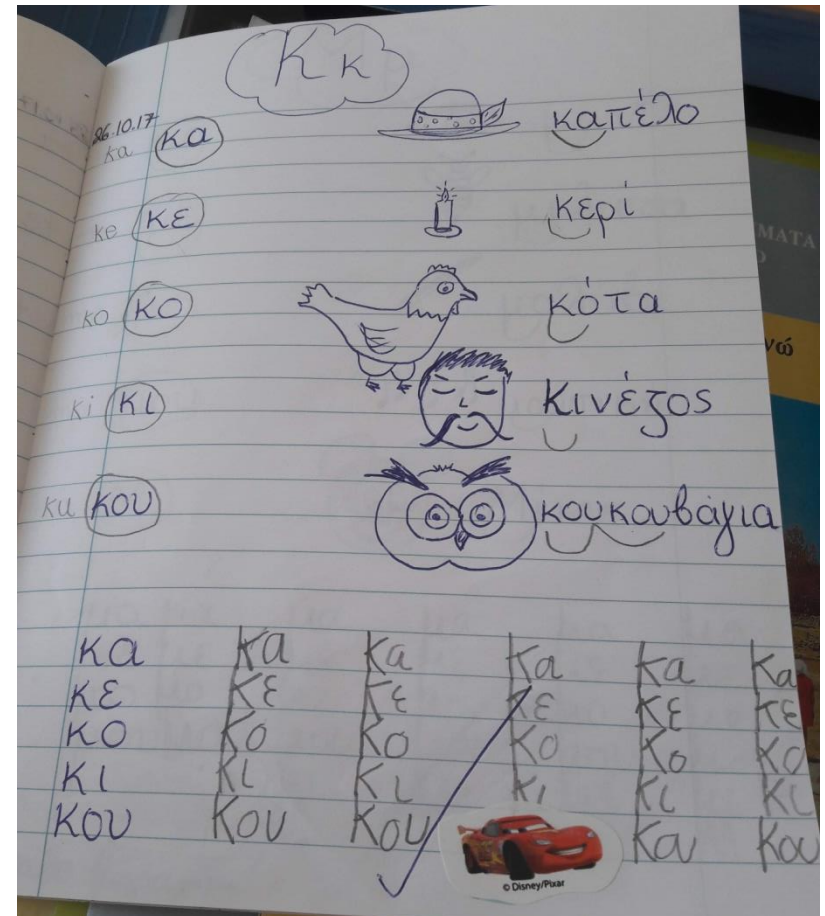 Κ κ
26.10.17
ka κα καπέλο
ke κε κερί
ko κο κότα
ki κι κινέζος
ku κου κουκουβάγια
κα κα κα κα κα κα
κε κε κε κε κε κε
κο κο κο κο κο κο
κι κι κι κι κι κι
κου κου κου καυ κου
© Disney/Pixar
ΜΑΤΑ
νώ